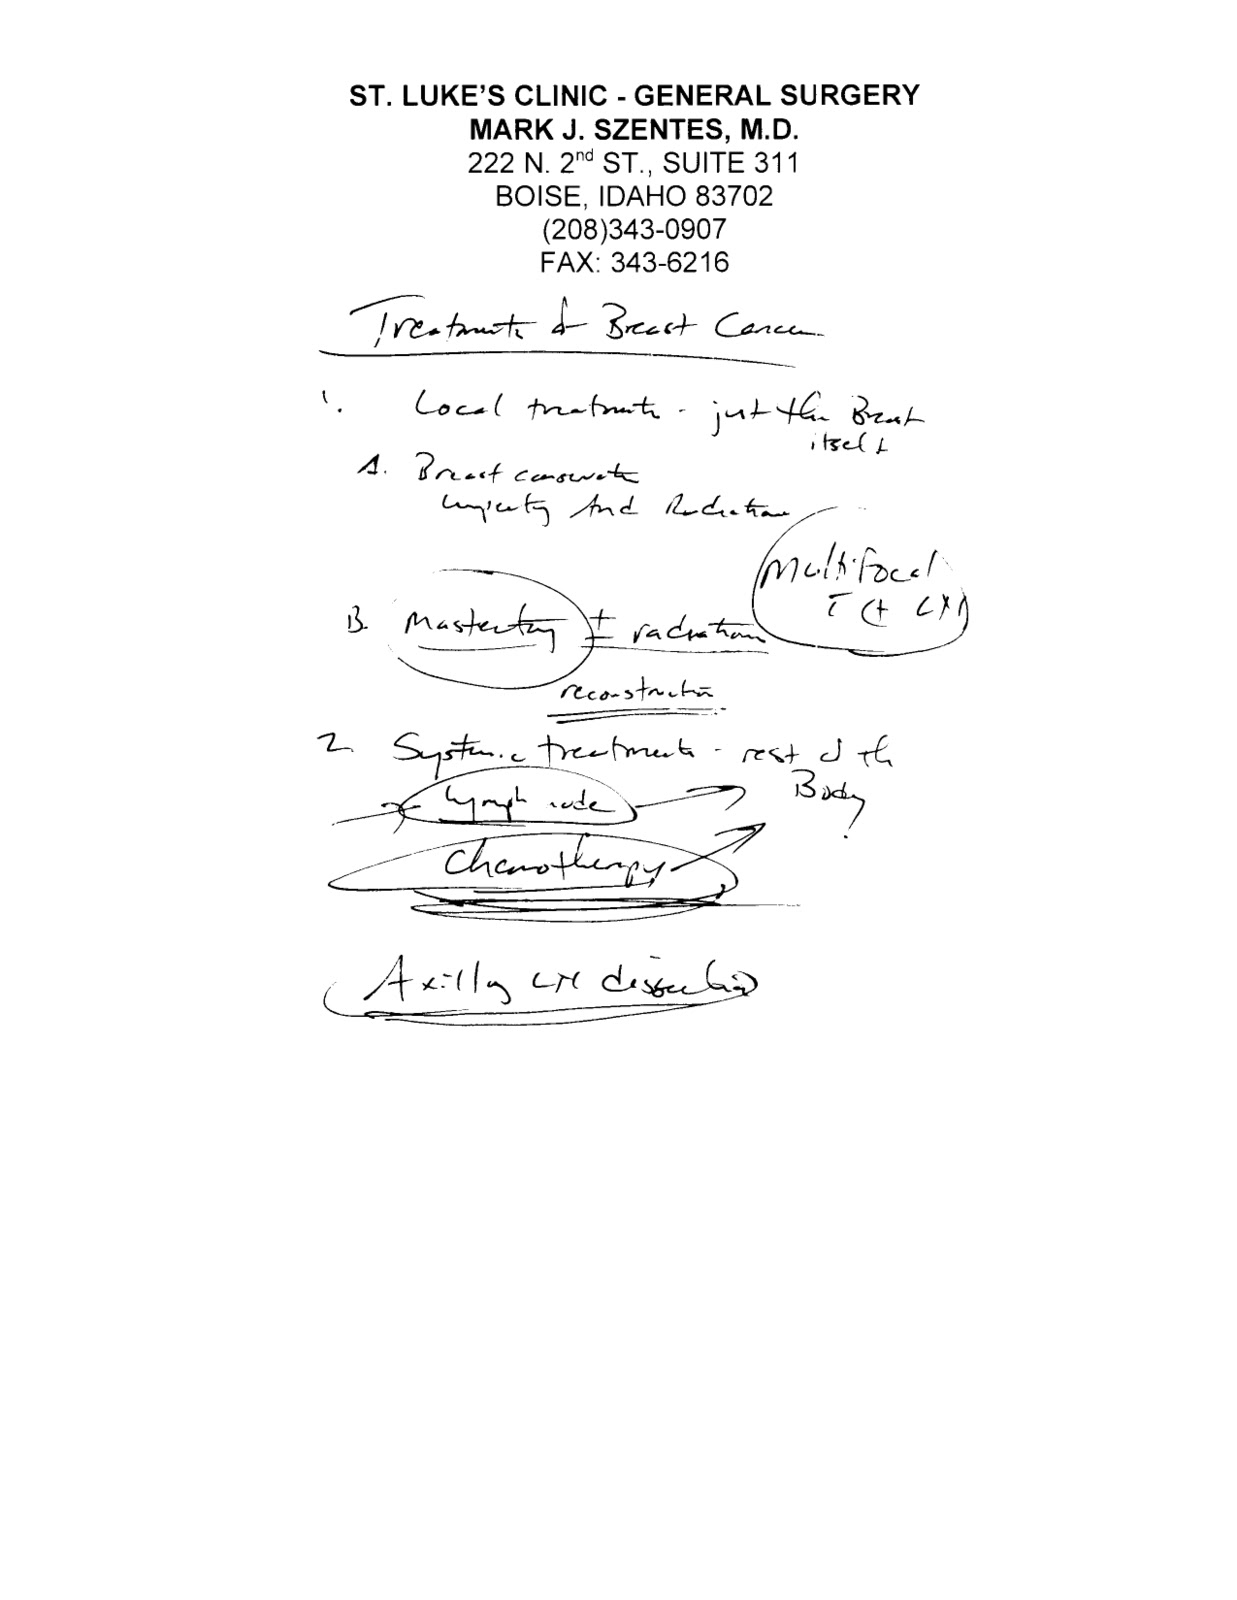 ST. LUKE'S CLINIC - GENERAL SURGERY
MARK J. SZENTES, M.D.
222 N. 2nd ST., SUITE 311
BOISE, IDAHO 83702
(208)343-0907
FAX: 343-6216
Treatments of Breast Cancer
1. Local treatments - just the Breast
itself
A. Breast conservation
And Radiation
Multifocal
(+ LN)
B. Mastectomy ± radiation
reconstruction
2 Systemic treatments - rest of the
Body
Lymph node
Chemotherapy
Axillary LN dissection